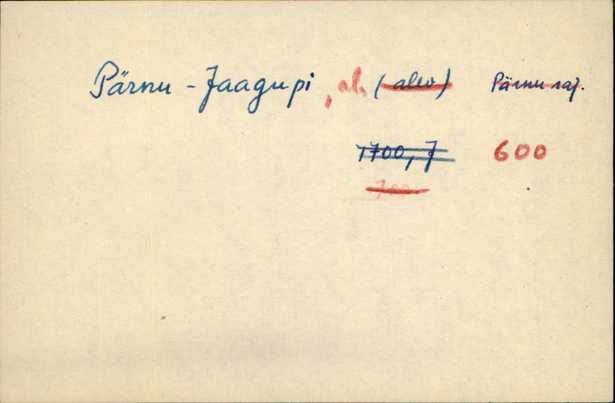 Pärnu-Jaagupi, al. (alev) Pärnu raj.
1700,7 600
700